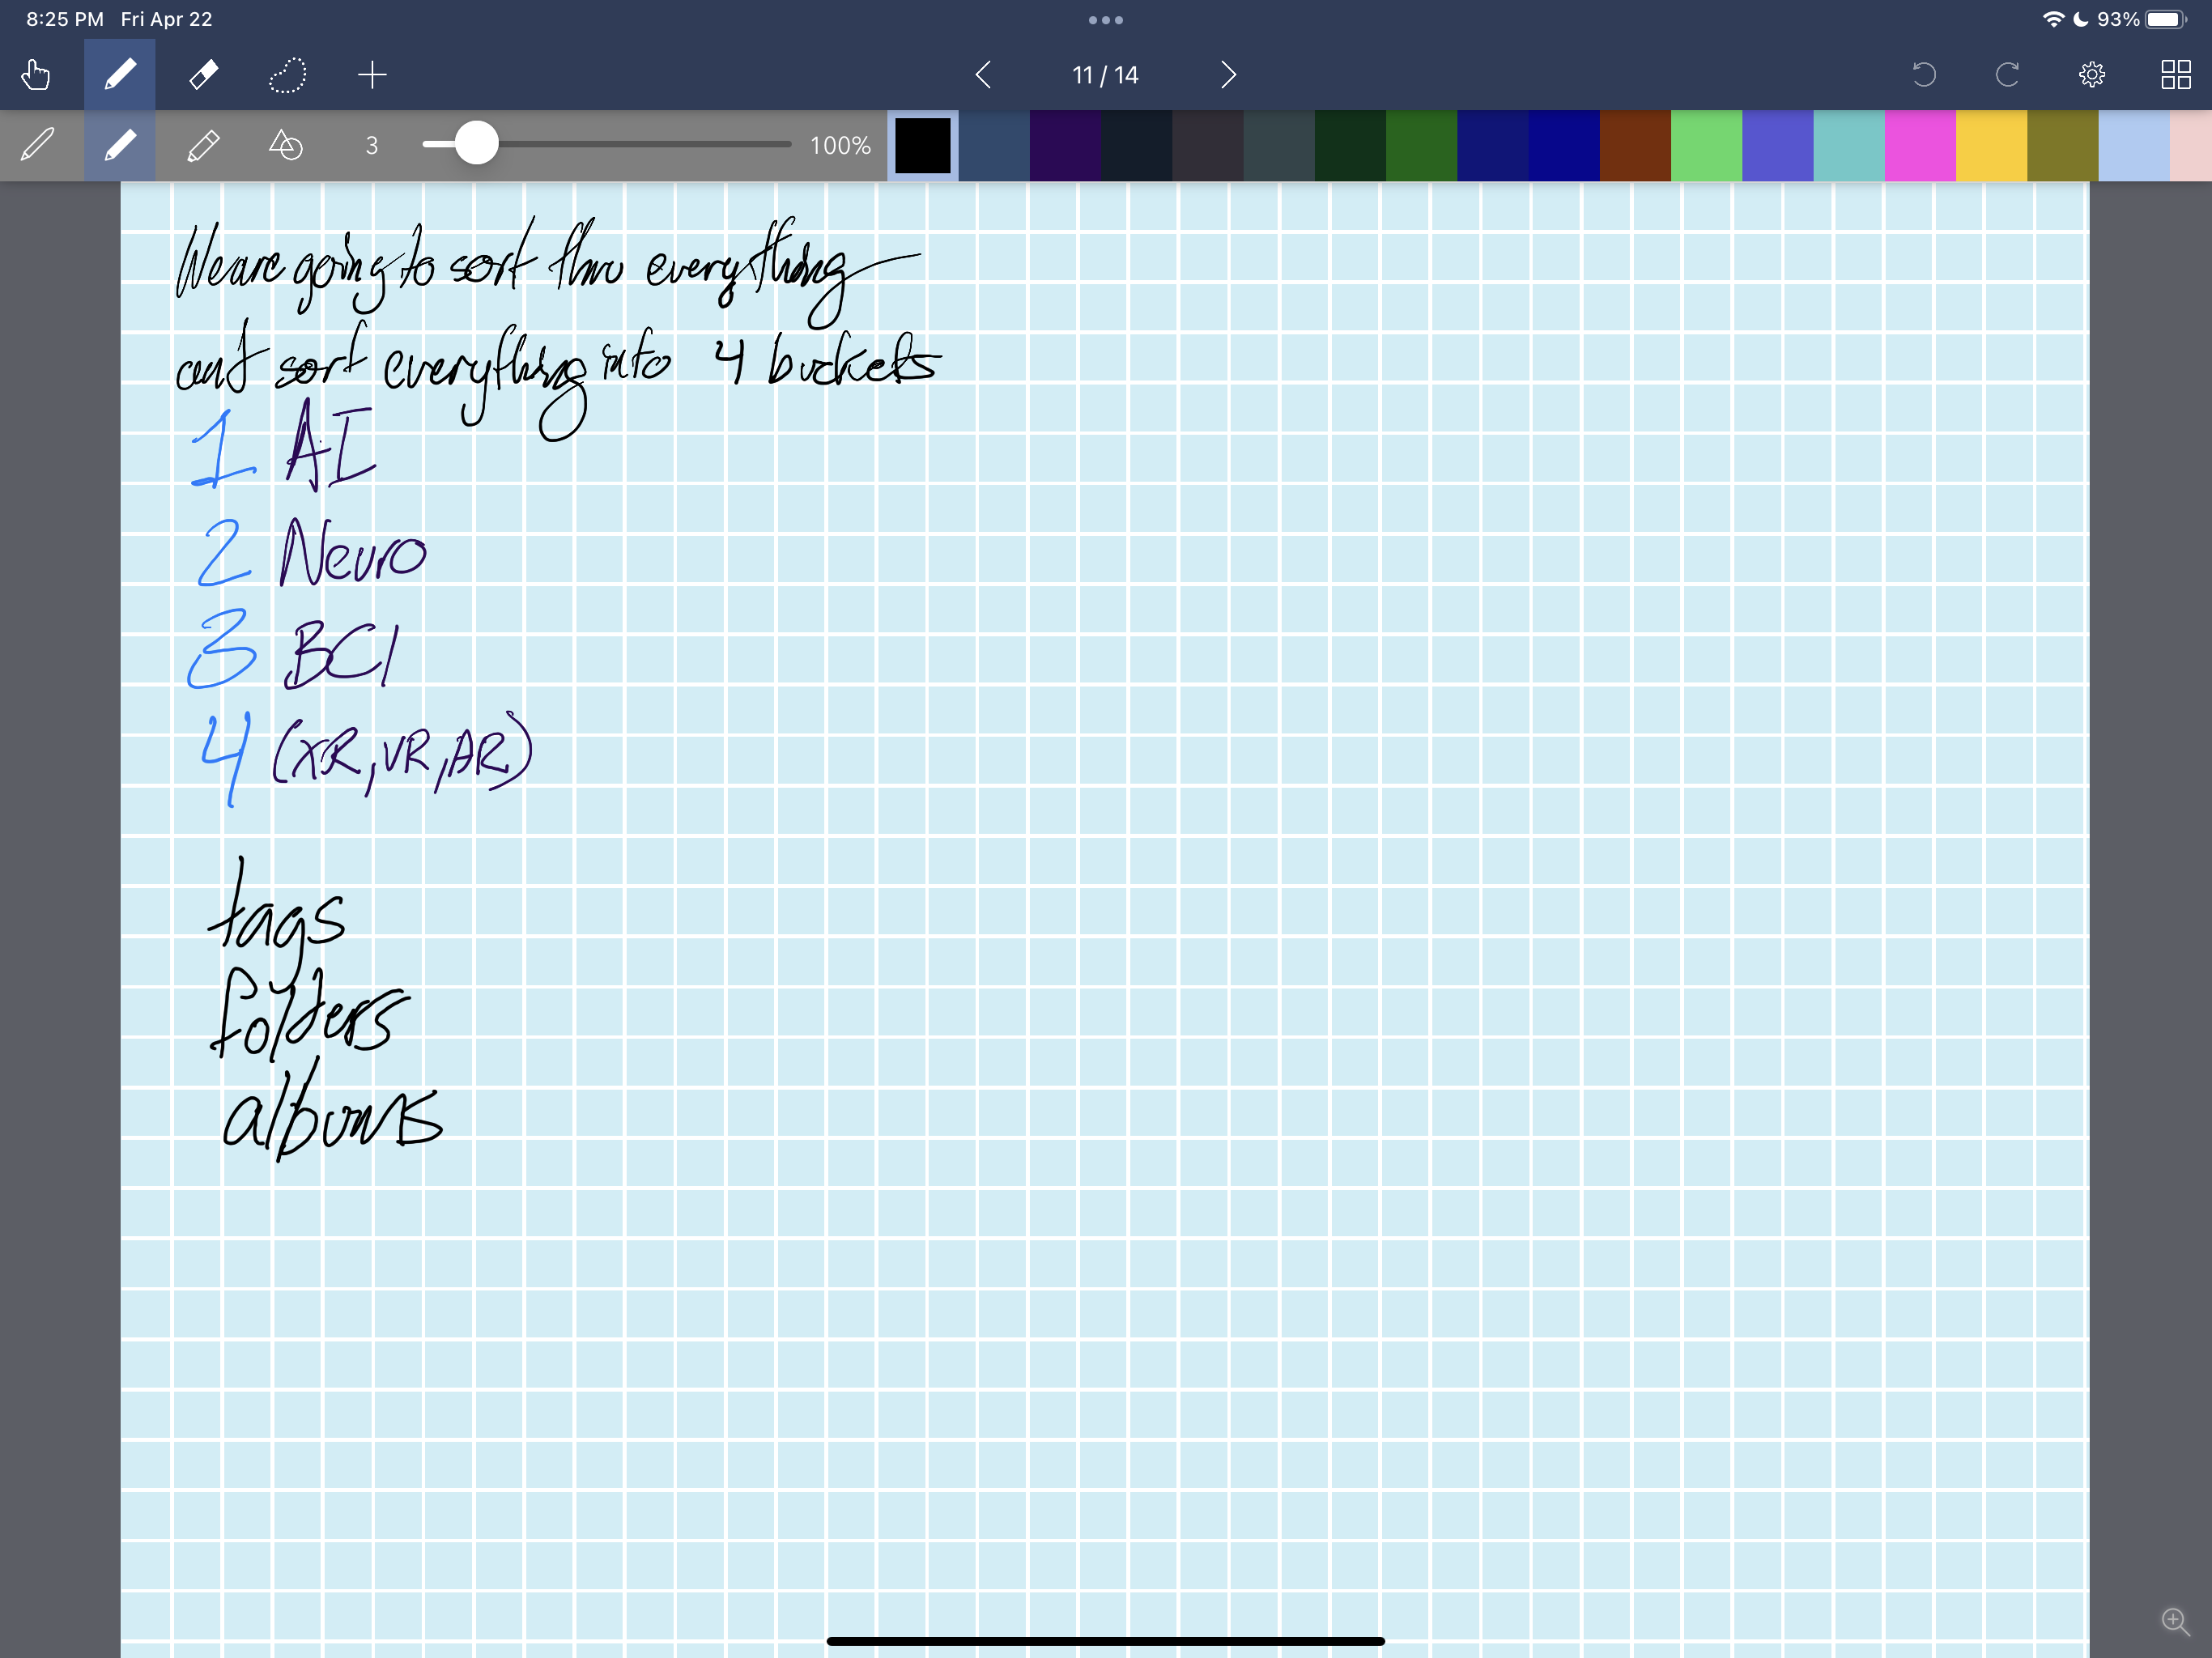 8:25 PM Fri Apr 22
93%
11 / 14
3
100%
We are going to sort thru everything
and sort everything into 4 buckets
1 AI
2 Neuro
3 BCI
4 (XR, VR, AR)
tags
folders
albums